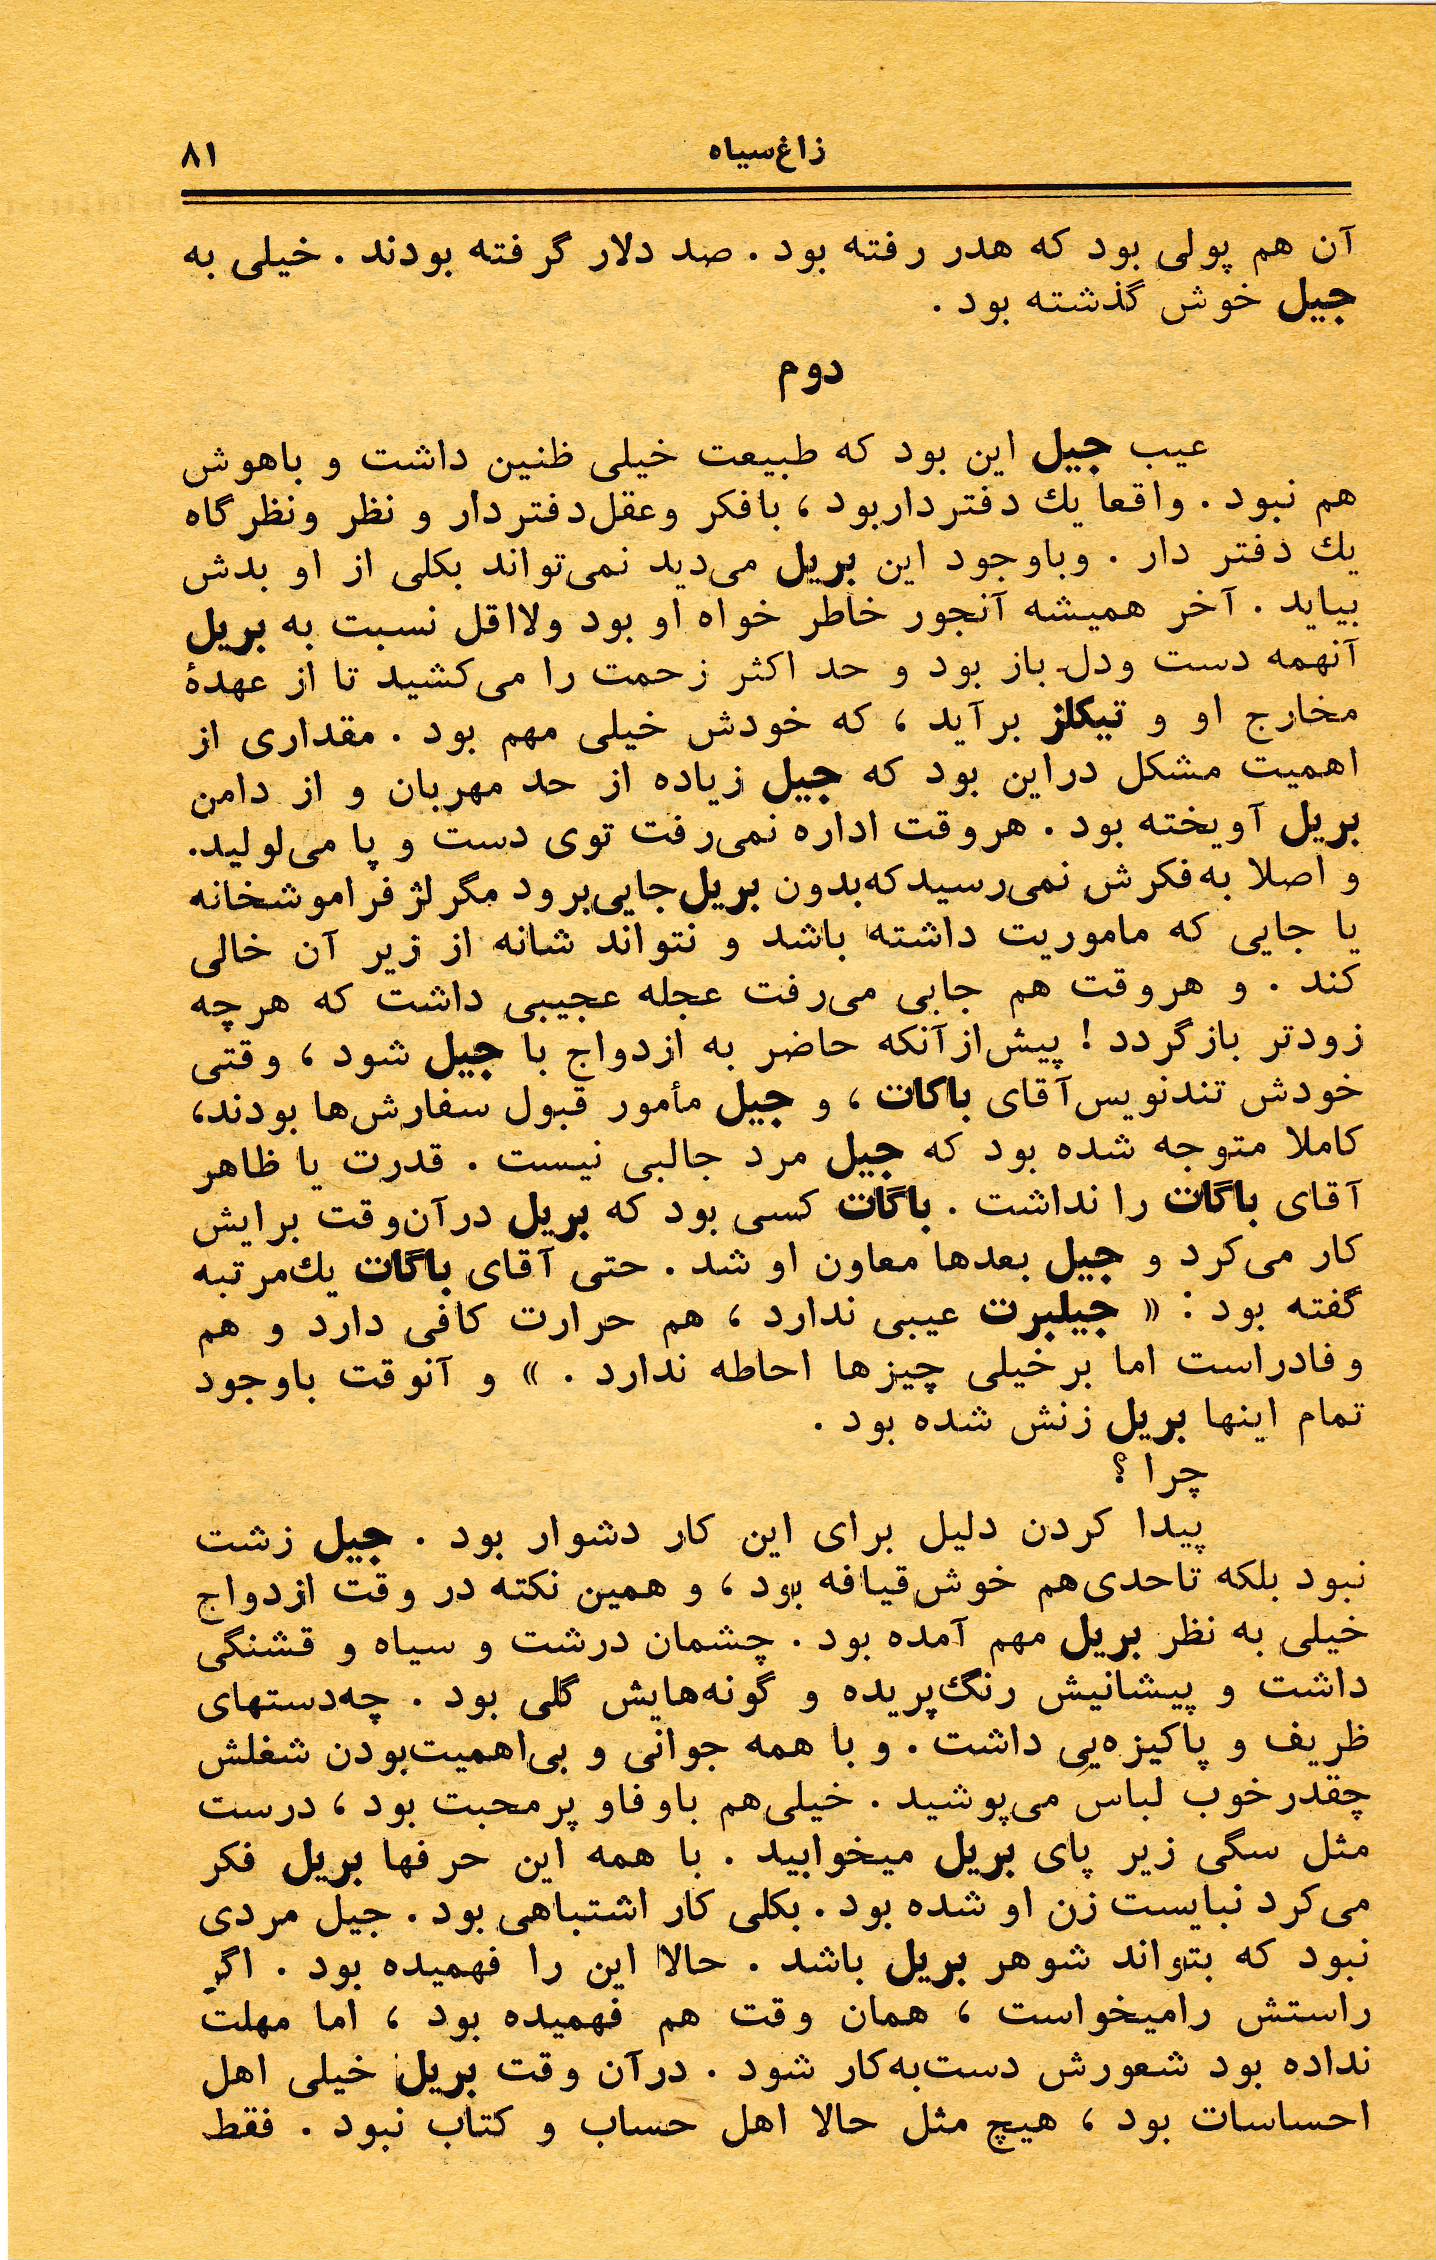 زاغ‌سیاه
۸۱
آن هم پولی بود که هدر رفته بود . صد دلار گرفته بودند . خیلی به
جیل خوش گذشته بود .
دوم
عیب جیل این بود که طبیعت خیلی ظنین داشت و باهوش
هم نبود . واقعا یك دفترداربود ، بافکر وعقل‌دفتردار و نظر ونظرگاه
یك دفتر دار . وباوجود این بریل می‌دید نمی‌تواند بکلی از او بدش
بیاید . آخر همیشه آنجور خاطر خواه او بود ولااقل نسبت به بریل
آنهمه دست ودل‌باز بود و حد اکثر زحمت را می‌کشید تا از عهدهٔ
مخارج او و تیکلز برآید ، که خودش خیلی مهم بود . مقداری از
اهمیت مشکل دراین بود که جیل زیاده از حد مهربان و از دامن
بریل آویخته بود . هروقت اداره نمی‌رفت توی دست و پا می‌لولید.
و اصلا به‌فکرش نمی‌رسیدکه‌بدون بریل‌جایی‌برود مگرلژ فراموشخانه
یا جایی که ماموریت داشته باشد و نتواند شانه از زیر آن خالی
کند . و هروقت هم جایی می‌رفت عجله عجیبی داشت که هرچه
زودتر بازگردد ! پیش‌ازآنکه حاضر به ازدواج با جیل شود ، وقتی
خودش تندنویس‌آقای باکات ، و جیل مأمور قبول سفارش‌ها بودند،
کاملا متوجه شده بود که جیل مرد جالبی نیست . قدرت یا ظاهر
آقای باگات را نداشت . باگات کسی بود که بریل درآن‌وقت برایش
کار می‌کرد و جیل بعدها معاون او شد . حتی آقای باگات یك‌مرتبه
گفته بود : « جیلبرت عیبی ندارد ، هم حرارت کافی دارد و هم
وفادراست اما برخیلی چیزها احاطه ندارد . » و آنوقت باوجود
تمام اینها بریل زنش شده بود .
چرا ؟
پیدا کردن دلیل برای این کار دشوار بود . جیل زشت
نبود بلکه تاحدی‌هم خوش‌قیافه بود ، و همین نکته در وقت ازدواج
خیلی به نظر بریل مهم آمده بود . چشمان درشت و سیاه و قشنگی
داشت و پیشانیش رنگ‌پریده و گونه‌هایش گلی بود . چه‌دستهای
ظریف و پاکیزه‌یی داشت . و با همه جوانی و بی‌اهمیت‌بودن شغلش
چقدرخوب لباس می‌پوشید . خیلی‌هم باوفاو پرمحبت بود ، درست
مثل سگی زیر پای بریل میخوابید . با همه این حرفها بریل فکر
می‌کرد نبایست زن او شده بود . بکلی کار اشتباهی بود . جیل مردی
نبود که بتواند شوهر بریل باشد . حالا این را فهمیده بود . اگر
راستش رامیخواست ، همان وقت هم فهمیده بود ، اما مهلت
نداده بود شعورش دست‌به‌کار شود . درآن وقت بریل خیلی اهل
احساسات بود ، هیچ مثل حالا اهل حساب و کتاب نبود . فقط